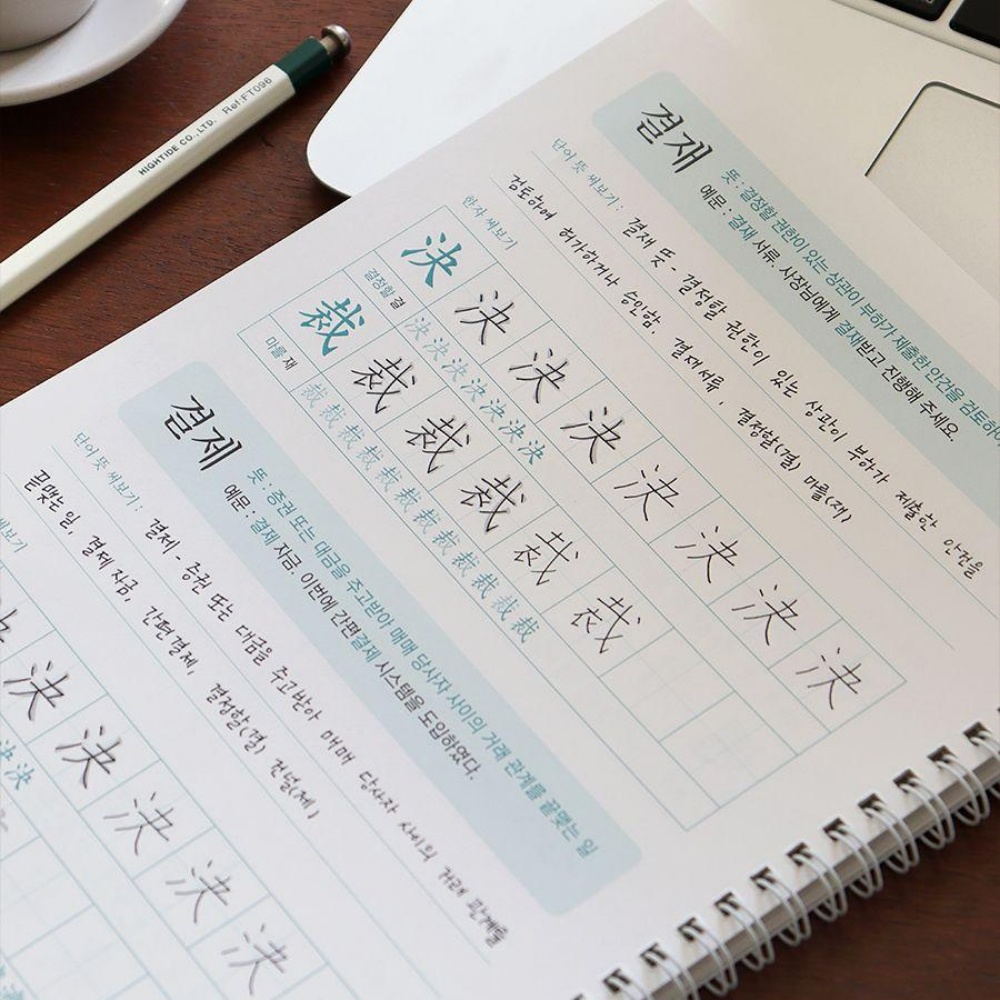 HIGHTIDE CO.,LTD. Ref:FT096
결재
뜻 : 결정할 권한이 있는 상관이 부하가 제출한 안건을 검토하여
예문 : 결재 서류. 사장님에게 결재받고 진행해 주세요.
단어 뜻 써보기 : 결재 뜻 - 결정할 권한이 있는 상관이 부하가 제출한 안건을
검토하여 허가하거나 승인함. 결재서류, 결정할(결) 마를(재)
한자 써보기
決 決 決 決 決 決 決 決
결정할 결 決 決 決 決 決 決 決
裁 裁 裁 裁 裁 裁
마를 재 裁 裁 裁 裁 裁 裁 裁 裁 裁 裁 裁 裁
결제
뜻 : 증권 또는 대금을 주고받아 매매 당사자 사이의 거래 관계를 끝맺는 일
예문 : 결제 자금. 이번에 간편결제 시스템을 도입하였다.
단어 뜻 써보기 : 결제 - 증권 또는 대금을 주고받아 매매 당사자 사이의 거래 관계를
끝맺는 일, 결제 자금, 간편결제, 결정할(결) 건널(제)
써보기
決 決 決 決 決
決 決